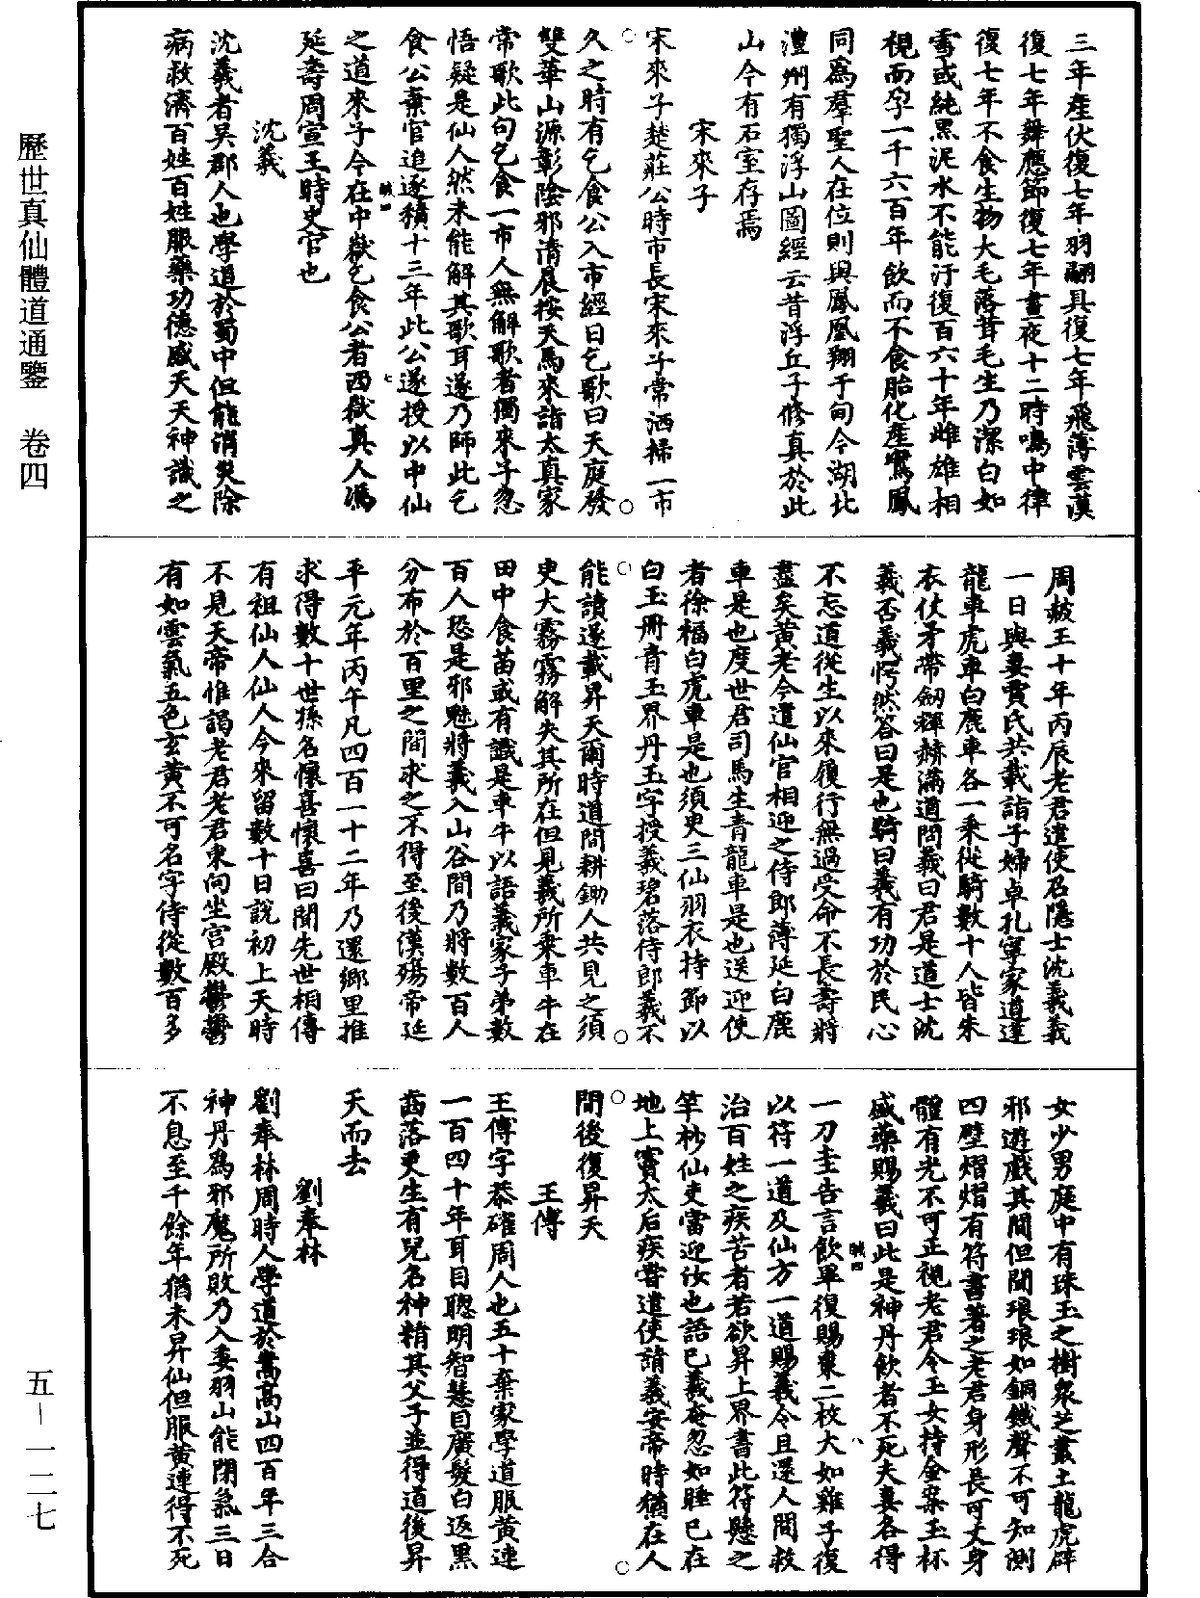 歷世真仙體道通鑒　卷四
三年產伏復七年羽翮具復七年飛薄雲漢
復七年舞應節復七年晝夜十二時鳴中律
復七年不食生物大毛落茸毛生乃潔白如
雪或純黑泥水不能汙復百六十年雌雄相
視而孕一千六百年飲而不食胎化產鸞鳳
同為羣聖人在位則與鳳凰翔于甸今湖北
澧州有獨浮山圖經云昔浮丘子修真於此
山今有石室存焉
宋來子
宋來子楚莊公時市長宋來子常洒掃一市
久之時有乞食公入市經日乞歌曰天庭發
雙華山源彰陰邪清晨按天馬來詣太真家
常歌此句乞食一市人無解歌者獨來子忽
悟疑是仙人然未能解其歌耳遂乃師此乞
食公棄官追逐積十三年此公遂授以中仙
之道來子今在中嶽乞食公者西嶽真人馮
延壽周宣王時史官也
沈羲
沈羲者吳郡人也學道於蜀中但能消災除
病救濟百姓百姓服藥功德感天天神識之
周赧王十年丙辰老君遣使召隱士沈羲羲
一日與妻賈氏共載詣子婦卓孔寧家道逢
龍車虎車白鹿車各一乘從騎數十人皆朱
衣仗矛帶劒輝赫滿道問羲曰君是道士沈
羲否羲愕然答曰是也騎曰羲有功於民心
不忘道從生以來履行無過受命不長壽將
盡矣黃老今遣仙官相迎之侍郎薄延白鹿
車是也度世君司馬生青龍車是也送迎使
者徐福白虎車是也須臾三仙羽衣持節以
白玉冊青玉界丹玉字授羲碧落侍郎羲不
能讀遂載昇天爾時道間耕鋤人共見之須
臾大霧霧解失其所在但見羲所乘車牛在
田中食苗或有識是車牛以語羲家子弟數
百人恐是邪魅將羲入山谷間乃將數百人
分布於百里之間求之不得至後漢殤帝延
平元年丙午凡四百一十二年乃還鄉里推
求得數十世孫名懷喜懷喜曰聞先世相傳
有祖仙人仙人今來留數十日說初上天時
不見天帝惟謁老君老君東向坐宮殿鬱鬱
有如雲氣五色玄黃不可名字侍從數百多
女少男庭中有珠玉之樹眾芝叢生龍虎辟
邪遊戲其間但聞琅琅如銅鐵聲不可知測
四壁熠熠有符書著之老君身形長可丈身
體有光不可正視老君令玉女持金案玉杯
盛藥賜羲曰此是神丹飲者不死夫妻各得
一刀圭告言飲畢復賜棗二枚大如雞子復
以符一道及仙方一道賜羲令且還人間救
治百姓之疾苦者若欲昇上界書此符懸之
竿杪仙吏當迎汝也語已羲奄忽如睡已在
地上竇太后疾嘗遣使請羲安帝時猶在人
間後復昇天
王傅
王傅字恭確周人也五十棄家學道服黃連
一百四十年耳目聰明智慧目廣髮白返黑
齒落更生有兒名神精其父子並得道後昇
天而去
劉奉林
劉奉林周時人學道於嵩高山四百年三合
神丹為邪魔所敗乃入委羽山能閉氣三日
不息至千餘年猶未昇仙但服黃連得不死
五－一二七